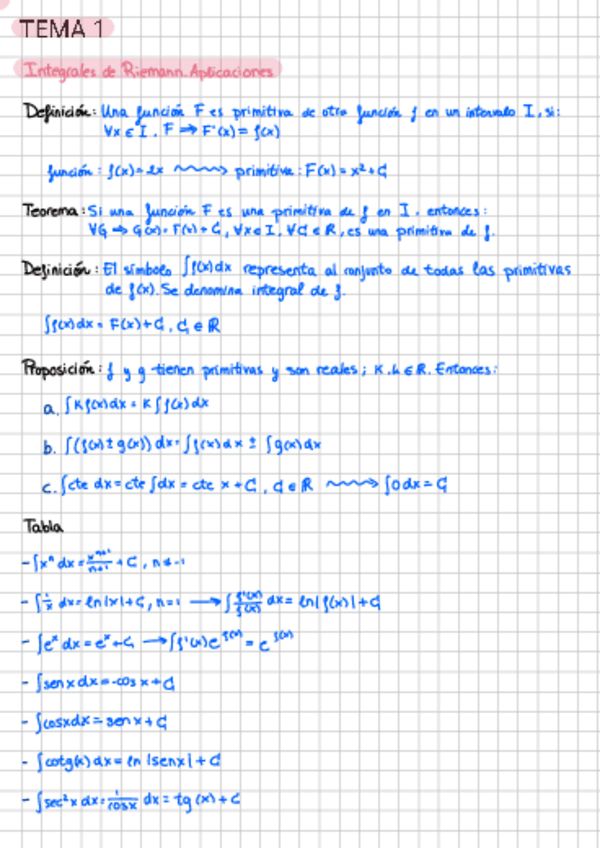 TEMA 1
Integrales de Riemann. Aplicaciones
Definición: Una función F es primitiva de otra función f en un intervalo I, si:
∀x ∈ I, F ⇒ F'(x) = f(x)
función: f(x)=2x ⟿ primitiva: F(x) = x²+C
Teorema: Si una función F es una primitiva de f en I, entonces:
∀G ⇒ G(x) = F(x) + C, ∀x ∈ I, ∀C ∈ ℝ, es una primitiva de f.
Definición: El símbolo ∫f(x)dx representa al conjunto de todas las primitivas
de f(x). Se denomina integral de f.
∫f(x)dx = F(x)+C, C ∈ ℝ
Proposición: f y g tienen primitivas y son reales; K, L ∈ ℝ. Entonces:
a. ∫K f(x)dx = K ∫f(x)dx
b. ∫(f(x) ± g(x)) dx = ∫f(x)dx ± ∫g(x)dx
c. ∫cte dx = cte ∫dx = cte x + C, C ∈ ℝ ⟿ ∫0dx = C
Tabla
- ∫xⁿ dx = xⁿ⁺¹/n+1 + C, n ≠ -1
- ∫1/x dx = ln|x|+C, n=1 → ∫f'(x)/f(x) dx = ln|f(x)|+C
- ∫eˣ dx = eˣ+C → ∫f'(x)e^f(x) = e^f(x)
- ∫sen x dx = -cos x + C
- ∫cosxdx = sen x + C
- ∫cotg(x) dx = ln |senx| + C
- ∫sec²x dx = 1/cosx dx = tg (x) + C